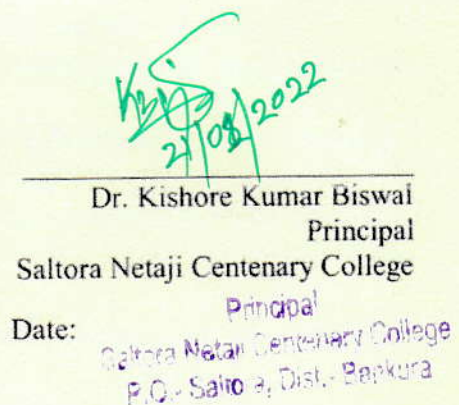 21/08/2022
Dr. Kishore Kumar Biswal
Principal
Saltora Netaji Centenary College
Date:
Principal
Saltora Netaji Centenary College
P.O.- Saltora, Dist.- Bankura